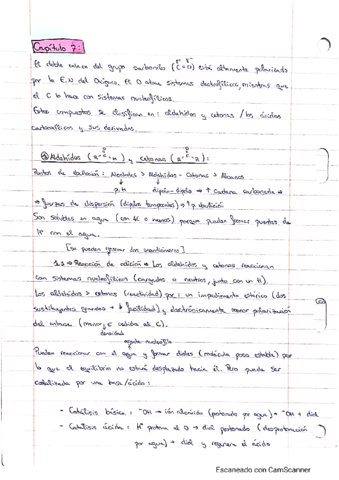 Capítulo 7:
El doble enlace del grupo carbonilo (C=O) está altamente polarizado
por la E.N del Oxígeno. El O atrae sistemas electrofílicos, mientras que
el C lo hace con sistemas nucleofílicos.
Estos compuestos se clasifican en: aldehídos y cetonas / los ácidos
carboxílicos y sus derivados.
Aldehídos (R-C-H) y cetonas (R-C-R):
Puntos de ebullición: Alcoholes > Aldehídos - Cetonas > Alcanos
p. H dipolo-dipolo ↑ Cadena carbonada ⇒
⇒ ↑ fuerzas de dispersión (dipolos temporales) ⇒ ↑ p. ebullición
Son solubles en agua (con 4C o menos) porque pueden formar puentes de
H con el agua.
[se pueden formar dos enantiómeros]
1.1 → Reacción de adición ⇒ Los aldehídos y cetonas reaccionan
con sistemas nucleofílicos (cargados o neutros, junto con un H).
Los aldehídos > cetonas (reactividad) por: un impedimento estérico (dos
sustituyentes grandes → ↓ facilidad) y electrónicamente menor polarización
del enlace (menor densidad e⁻ cedida al C).
agente nucleófilo
Pueden reaccionar con el agua y formar dioles (molécula poco estable) por
lo que el equilibrio no estará desplazado hacia él. Pero puede ser
catalizada por una base/ácido:
- Catálisis básica: ⁻OH → ión alcóxido (protonado por agua) → ⁻OH + diol
- Catálisis ácida: H⁺ protona al O → diol protonado (desprotonación
por agua) → diol y regenera el ácido
Escaneado con CamScanner